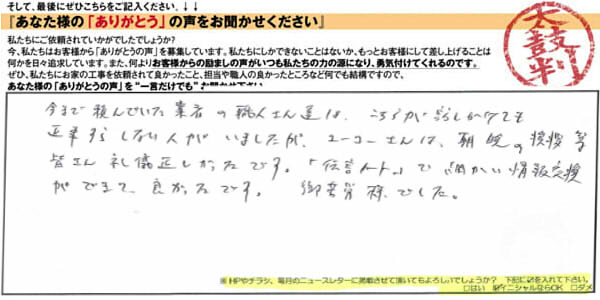 そして、最後にぜひこちらをご記入ください。↓↓↓
『あなた様の「ありがとう」の声をお聞かせください』
私たちにご依頼されていかがでしたでしょうか?
今、私たちはお客様から「ありがとうの声」を募集しています。私たちにしかできないことはないか、もっとお客様にして差し上げることは
何かを日々追求しています。また、何よりお客様からの励ましの声がいつも私たちの力の源になり、勇気付けてくれるのです。
ぜひ、私たちにお家の工事を依頼されて良かったこと、担当や職人の良かったところなど何でも結構ですので、
あなた様の「ありがとうの声」を“一言だけでも”お聞かせ下さい
太鼓判
今まで頼んでいた業者の職人さん達は、こちらが話しかけても
返事すらしない人がいましたが、ユーコーさんは、朝晩の挨拶等
皆さん礼儀正しかったです。「伝言ノート」で細かい情報交換
ができて良かったです。 御苦労様でした。
※HPやチラシ、毎月のニュースレターに掲載させて頂いてもよろしいでしょうか? 下記に☑を入れて下さい。
□はい ☑イニシャルならOK □ダメ